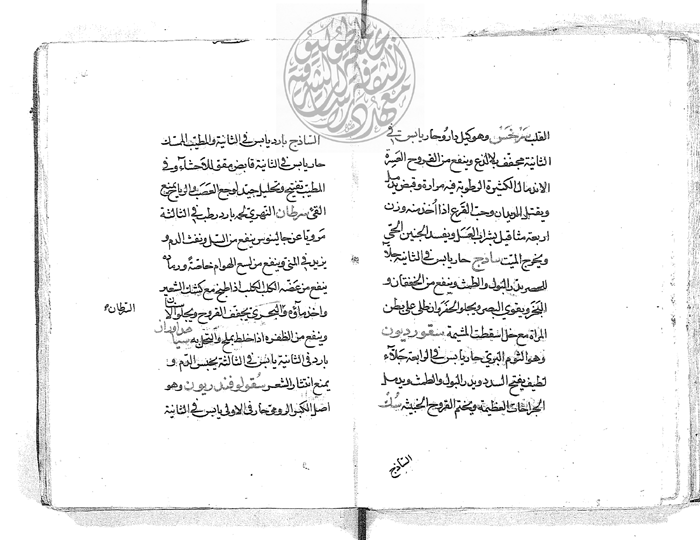 القلب سرخس وهو كيل دارو حار يابس فى
الثانية مجفف بلا لذع وينفع من القروح العسرة
الاندمال الكثيرة الرطوبة فيه مرارة وقبض يدمل
ويقتل الديدان وحب القرع اذا أخذ منه وزن
اربعة مثاقيل بشراب العسل ويفسد الجنين الحى
ويخرج الميت ساذج حار يابس فى الثانية جلآ
للبصر يدر البول والطمث وينفع من الخفقان و
البخر ويقوى البصر ويجلو الحفر وان طلى على بطن
المرأة مع خل اسقطت المشيمة سقورديون
وهو الثوم البرى حار يابس فى الرابعة جلآء
لطيف يفتح السدد ويدر البول والطمث ويدمل
الجراحات العظيمة ويختم القروح الخبيثه سك
الساذج
الساذج بارد يابس فى الثانية والمطيب المسك
حار يابس فى الثانية قابض مقوى للاحشاء وفى
المطيب تفتيح وتحليل جيد لوجع العصب يمنع
القئ سرطان النهرى لحمه بارد رطب فى الثالثة
مرويا عن جالينوس ينفع من السل ونفث الدم و
يزيد فى المنى وينفع من لسع الهوام خاصة ورماده
ينفع من عضة الكلب الكلب اذا طبخ مع كشك الشعير
واخذ ماؤه والبحرى يجفف القروح ويجلو الاسنان
وينفع من الظفره اذا خلط بملح واكتحل به سيا داوران
بارد فى الثانية يابس فى الثالثة يحبس الدم و
يمنع انتثار الشعر سقولوفندريون وهو
اصل الكبر الرومى حار فى الاولى يابس فى الثانية
السرطان